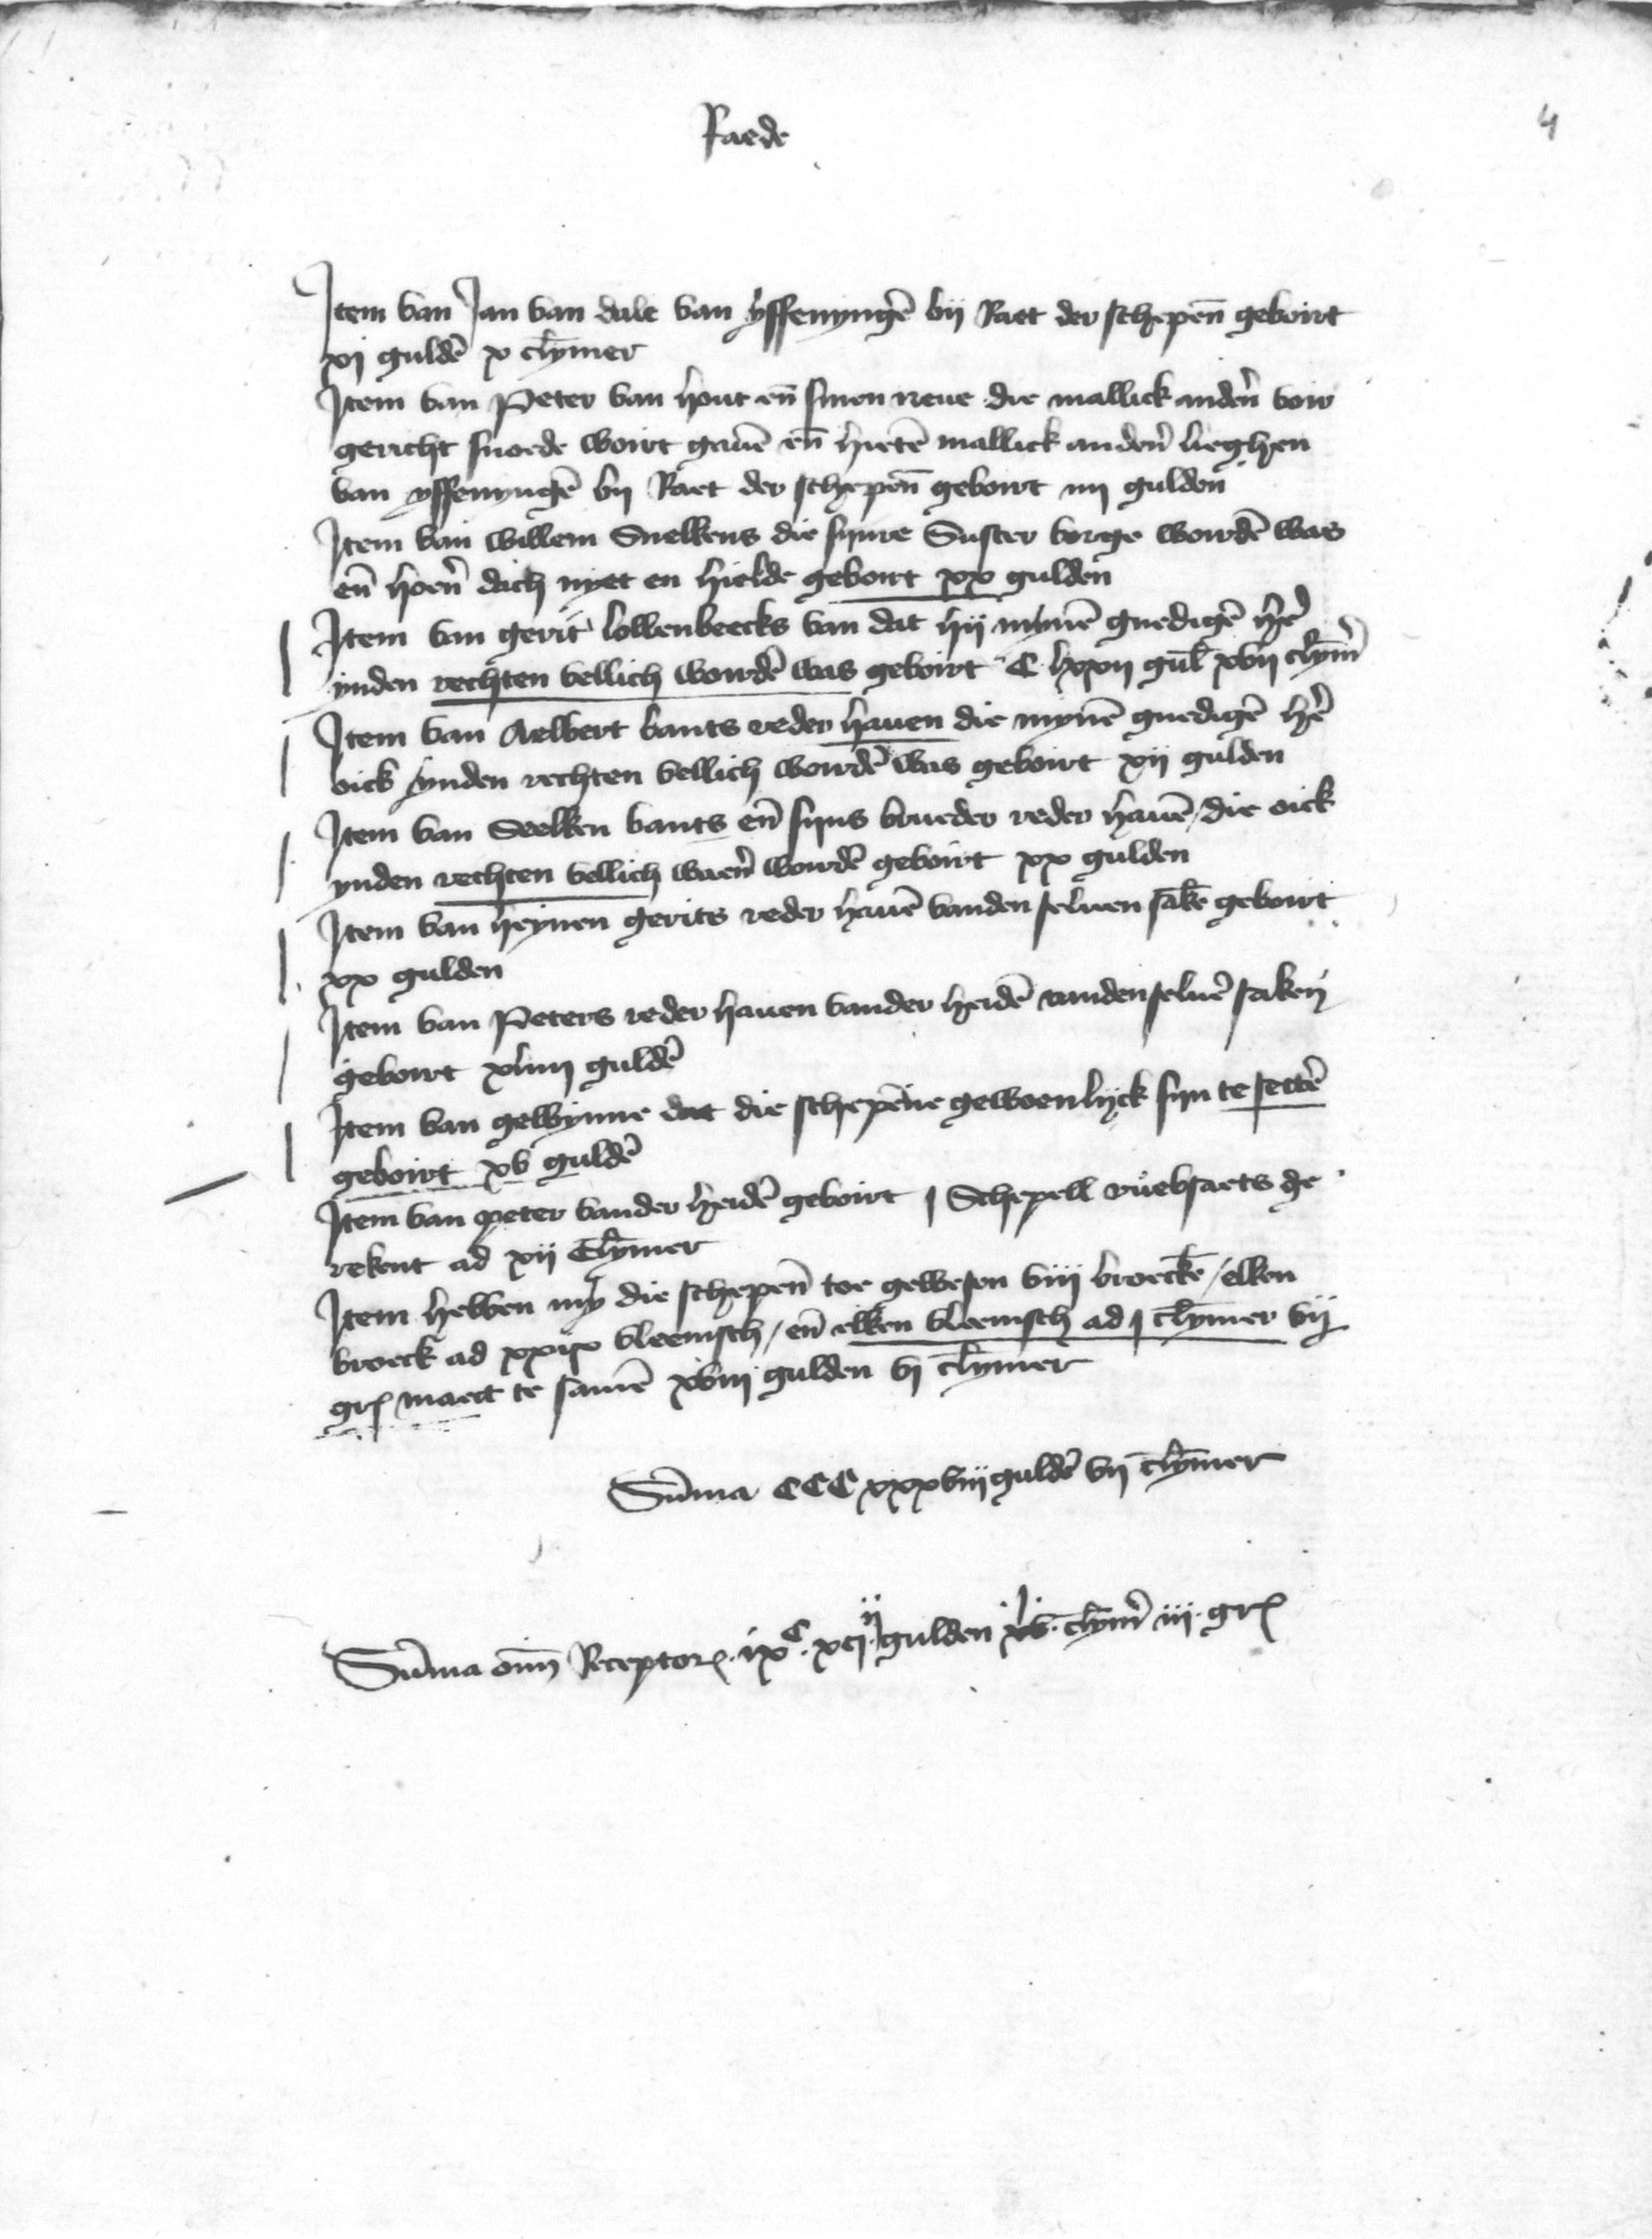 Raede
4
Item van Jan van dale van yssenyngē bij Raet der schepen̄ geboirt
xj guldē x clȳmer
Item van Peter van hout en̄ sinen neue die mallick anderē voir
gericht snoede woirt gauē en̄ hietē mallick anderē lieghen
van yssenyngē bij Raet der schepen̄ geboirt iiij gulden
Item van willem Snelkens die synre Suster borge wordē was
en̄ hoerē dach nyet en hielde geboirt xx gulden
Item van gerit lollenbeecks van dat hij mynē gnedigē hrē
ynden rechten vellich wordē was geboirt C lxxij gul̄ xvij clȳm̄
Item van Aelbert bants reder hauen die mynē gnedigē hrē
oick ynden rechten vellich wordē was geboirt xij gulden
Item van Seelken bants en̄ syns brueder reder hauē / die oick
ynden rechten vellich waerē wordē geboirt xx gulden
Item van heynen gerits reder hauē vanden seluen sakē geboirt
xx gulden
Item van Peters reder hauen vander heidē vanden seluē saken
geboirt xliiij guldē
Item van gewynne dat die schepēne gewoenlyck syn te settē
geboirt xv guldē
Item van peter vander heidē geboirt j Schepell ruebsaets ge
rekent ad xij clȳmer
Item hebben my die schepen̄ toe gewesen viij broeckē / elken
broeck ad xxix vleemsch / en̄ elken vleemsch ad j clȳmer vij
gr̄ maect te samē xviij gulden vj clȳmer
Sūma CCC xxxviij guldē vij clȳmer
Sūma om̄ Receptor̄ . ix C . xcij ij gulden xv . clȳm̄ iij . gr̄